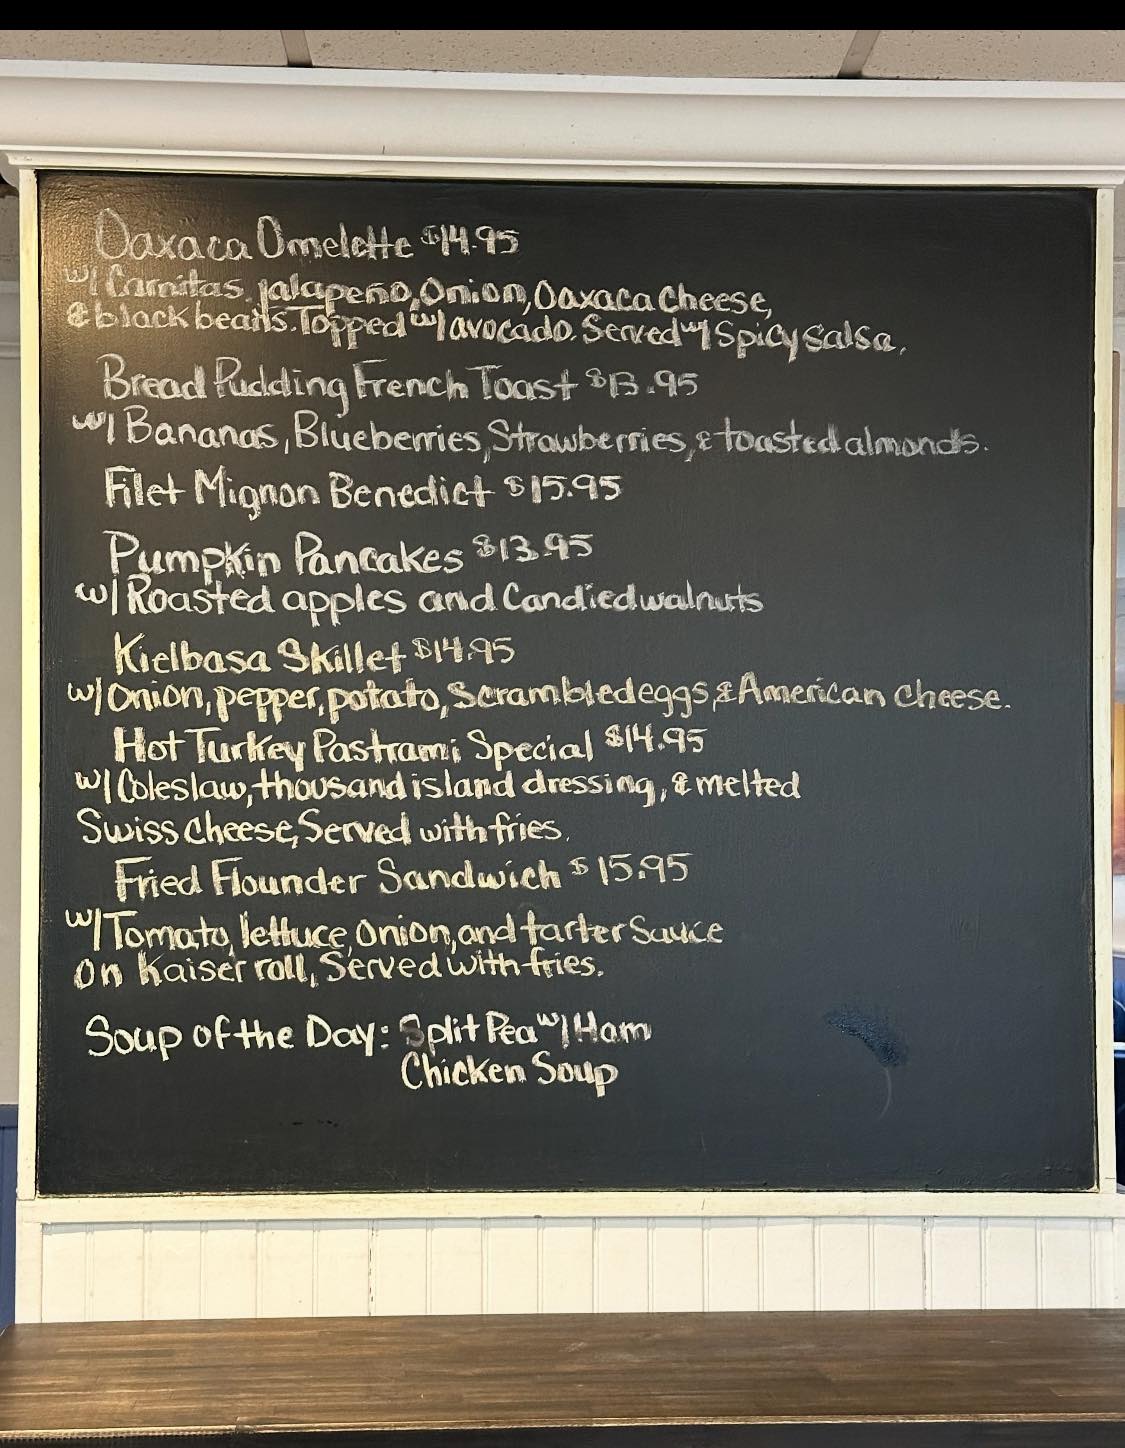 Oaxaca Omelette $14.95
w/ Carnitas, jalapeño, Onion, Oaxaca Cheese,
& black beans. Topped w/ avocado. Served w/ Spicy Salsa.
Bread Pudding French Toast $13.95
w/ Bananas, Blueberries, Strawberries, & toasted almonds.
Filet Mignon Benedict $15.95
Pumpkin Pancakes $13.95
w/ Roasted apples and Candied walnuts
Kielbasa Skillet $14.95
w/ Onion, pepper, potato, Scrambled eggs, & American cheese.
Hot Turkey Pastrami Special $14.95
w/ Coleslaw, thousand island dressing, & melted
Swiss cheese, Served with fries.
Fried Flounder Sandwich $15.95
w/ Tomato, lettuce, onion, and tarter Sauce
On Kaiser roll, Served with fries.
Soup of the Day: Split Pea w/ Ham
Chicken Soup